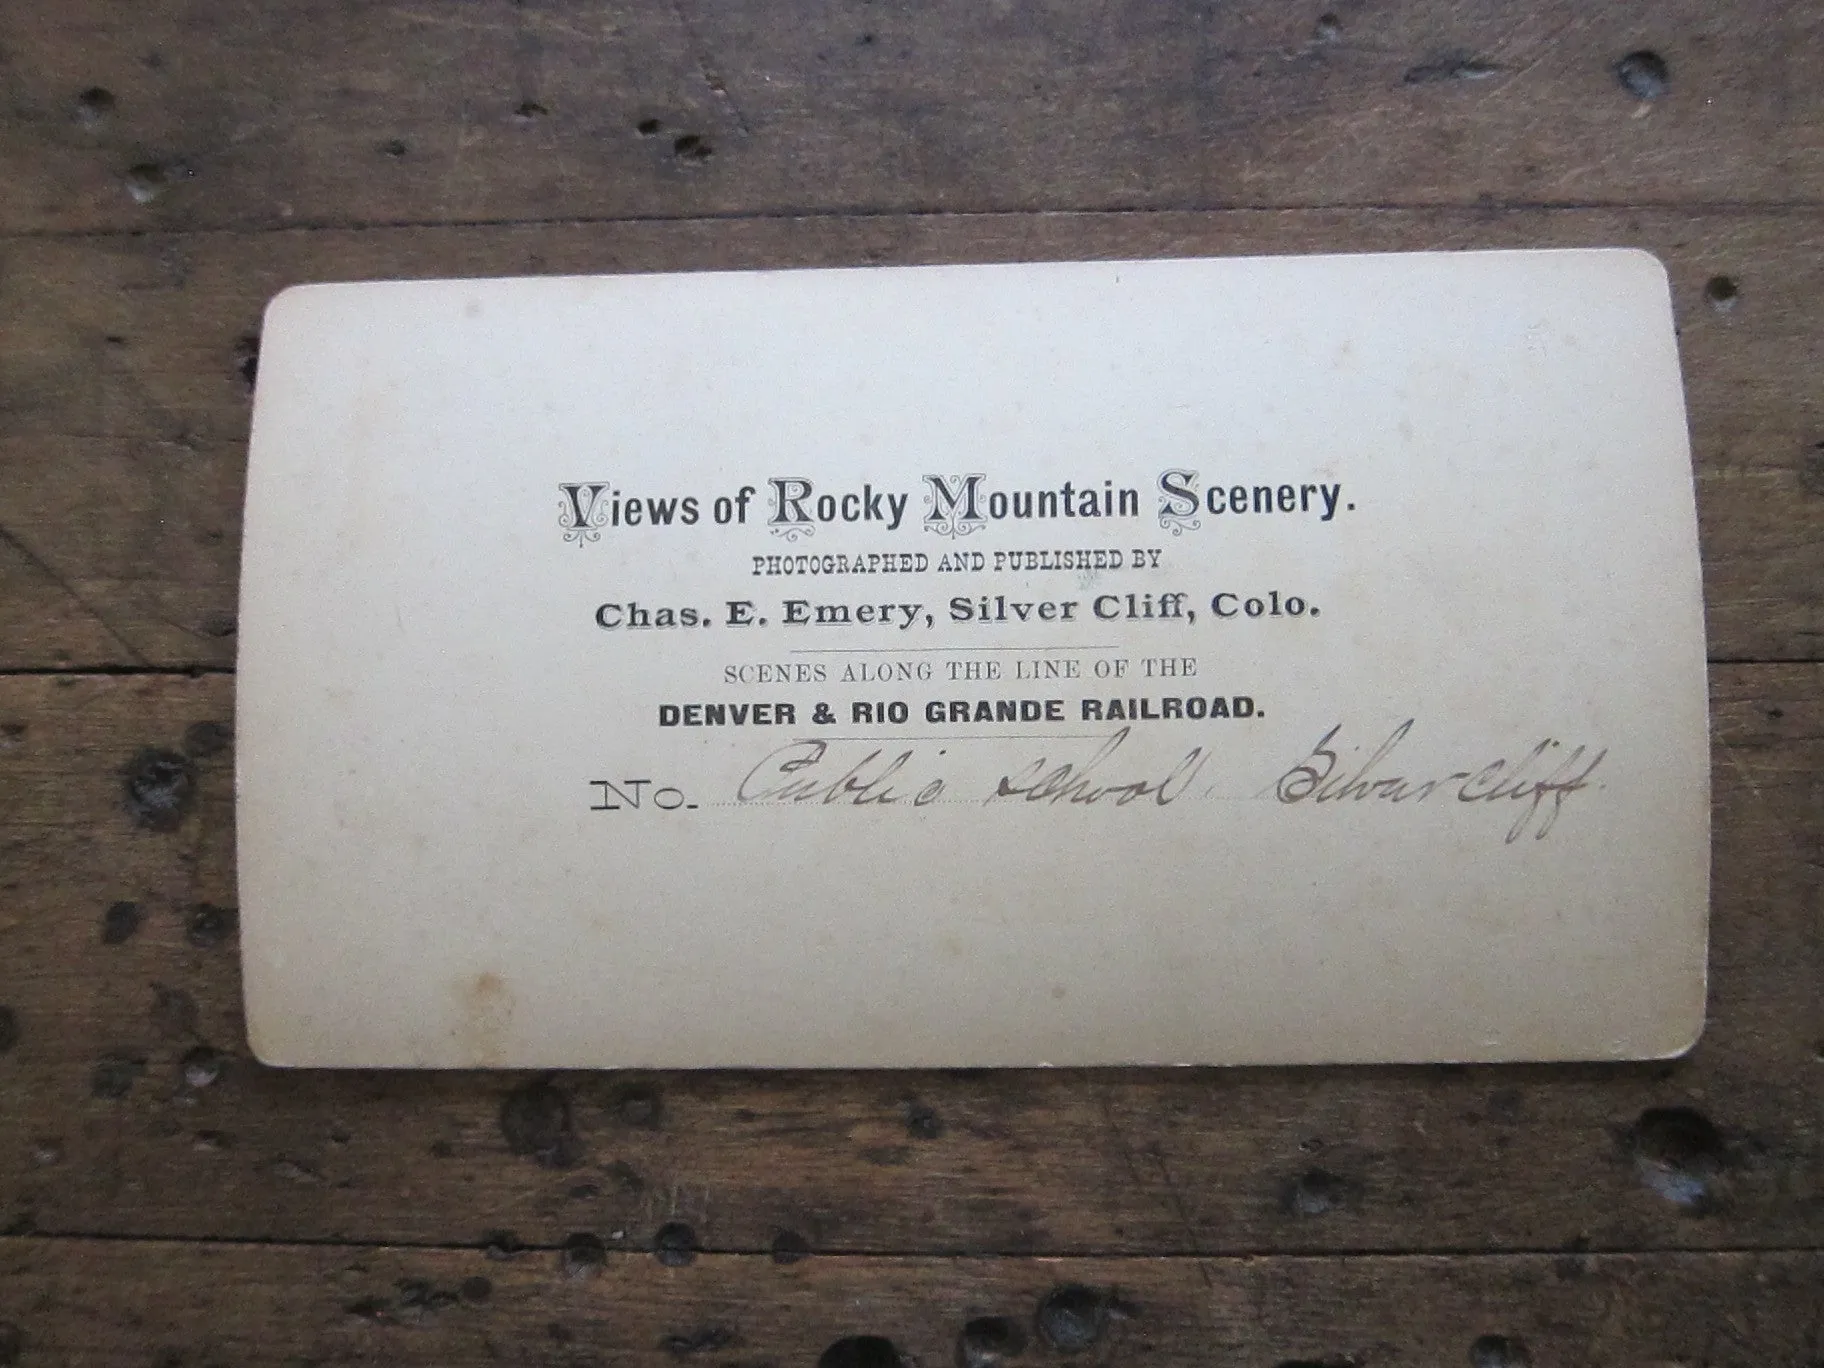 Views of Rocky Mountain Scenery.
PHOTOGRAPHED AND PUBLISHED BY
Chas. E. Emery, Silver Cliff, Colo.
SCENES ALONG THE LINE OF THE
DENVER & RIO GRANDE RAILROAD.
No. Public school. Silvercliff.